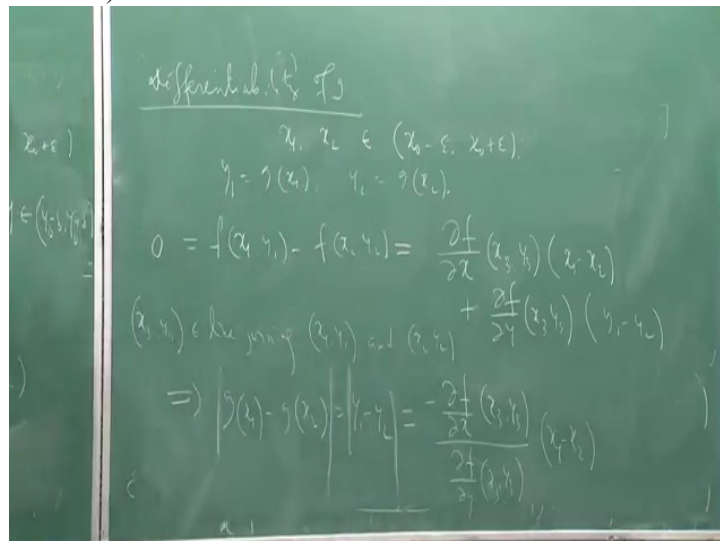 x₀+ε)
∈ (y₀-δ, y₀+δ)
=
Differentiability of g
x₁, x₂ ∈ (x₀-ε, x₀+ε).
y₁ = g(x₁), y₂ = g(x₂).
0 = f(x₁, y₁) - f(x₂, y₂) = ∂f/∂x (x₃, y₃) (x₁-x₂)
+ ∂f/∂y (x₃, y₃) (y₁-y₂)
(x₃, y₃) ∈ line joining (x₁, y₁) and (x₂, y₂)
⇒ |g(x₁) - g(x₂)| = |y₁-y₂| = -∂f/∂x (x₃, y₃) / ∂f/∂y (x₃, y₃) (x₁-x₂)